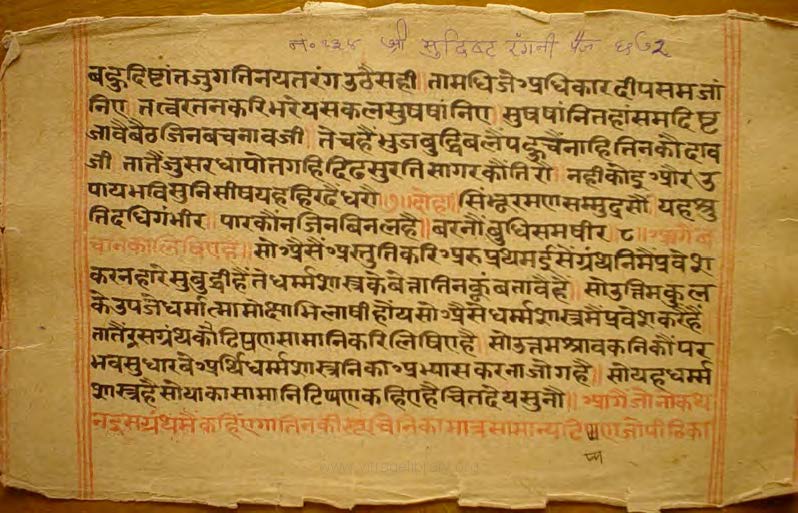 न॰ १३४ श्री सुद्रिष्ट रंगनी पेज ६६७२
बहुदिष्टांतजुगतिनयतरंगउठैसही ॥ तामधिजेअधिकारदीपसमजां
निए तत्वरतनकरिभरेयसकलसुषषांनिए ॥ सुषषांनितहांसमदिष्ट
जावैबैठजिनबचनावजी ॥ तेचहैंभुजबुद्धिबलैंपहुचैंनाहितिनकौदाव
जी तातैंजुसरधापोतगहिदिढसुरतिसागरकौंतिरौ ॥ नहीकोइअोरउ
पायभविसुनिसीषयहहिरदैधरौ ॥७॥ दोहा ॥ सिंभूरमणसम्मुद्रसौ यहश्रु
तिदधिगंभीर ॥ पारकौंनजिनबिनलहै ॥ बरनौंबुधिसमधीर ॥८॥ आगैव
चानकालिषिएहै ॥ सोअैसैंअस्तुतिकरिअरुप्रथमईसेंग्रंथनिमैंप्रवेश
करनहारेसुबुद्धीहैंतेधर्म्मशास्त्रकेबेत्तातिनकूंबतावहैं ॥ सोउत्तिमकुल
केउपजेधर्मात्मामोक्षाभिलाषीहोंयसोअैसेधर्म्मशास्त्रमैंप्रवेशकरैंहैं
तातैंइसग्रंथकौटिपणसामानिकरिलिषिएहै ॥ सोउत्तमश्रावकनिकौंपर
भवसुधारबेअर्थिधर्म्मशास्त्रनिकाअभ्यासकरनाजोगहै ॥ सोयहधर्म्म
शास्त्रहैसोयाकासामानिटिप्पणकहिएहैचितदेयसुनौ ॥ आगैजोजोकथ
नइसग्रंथमैंकहिएगातिनकी